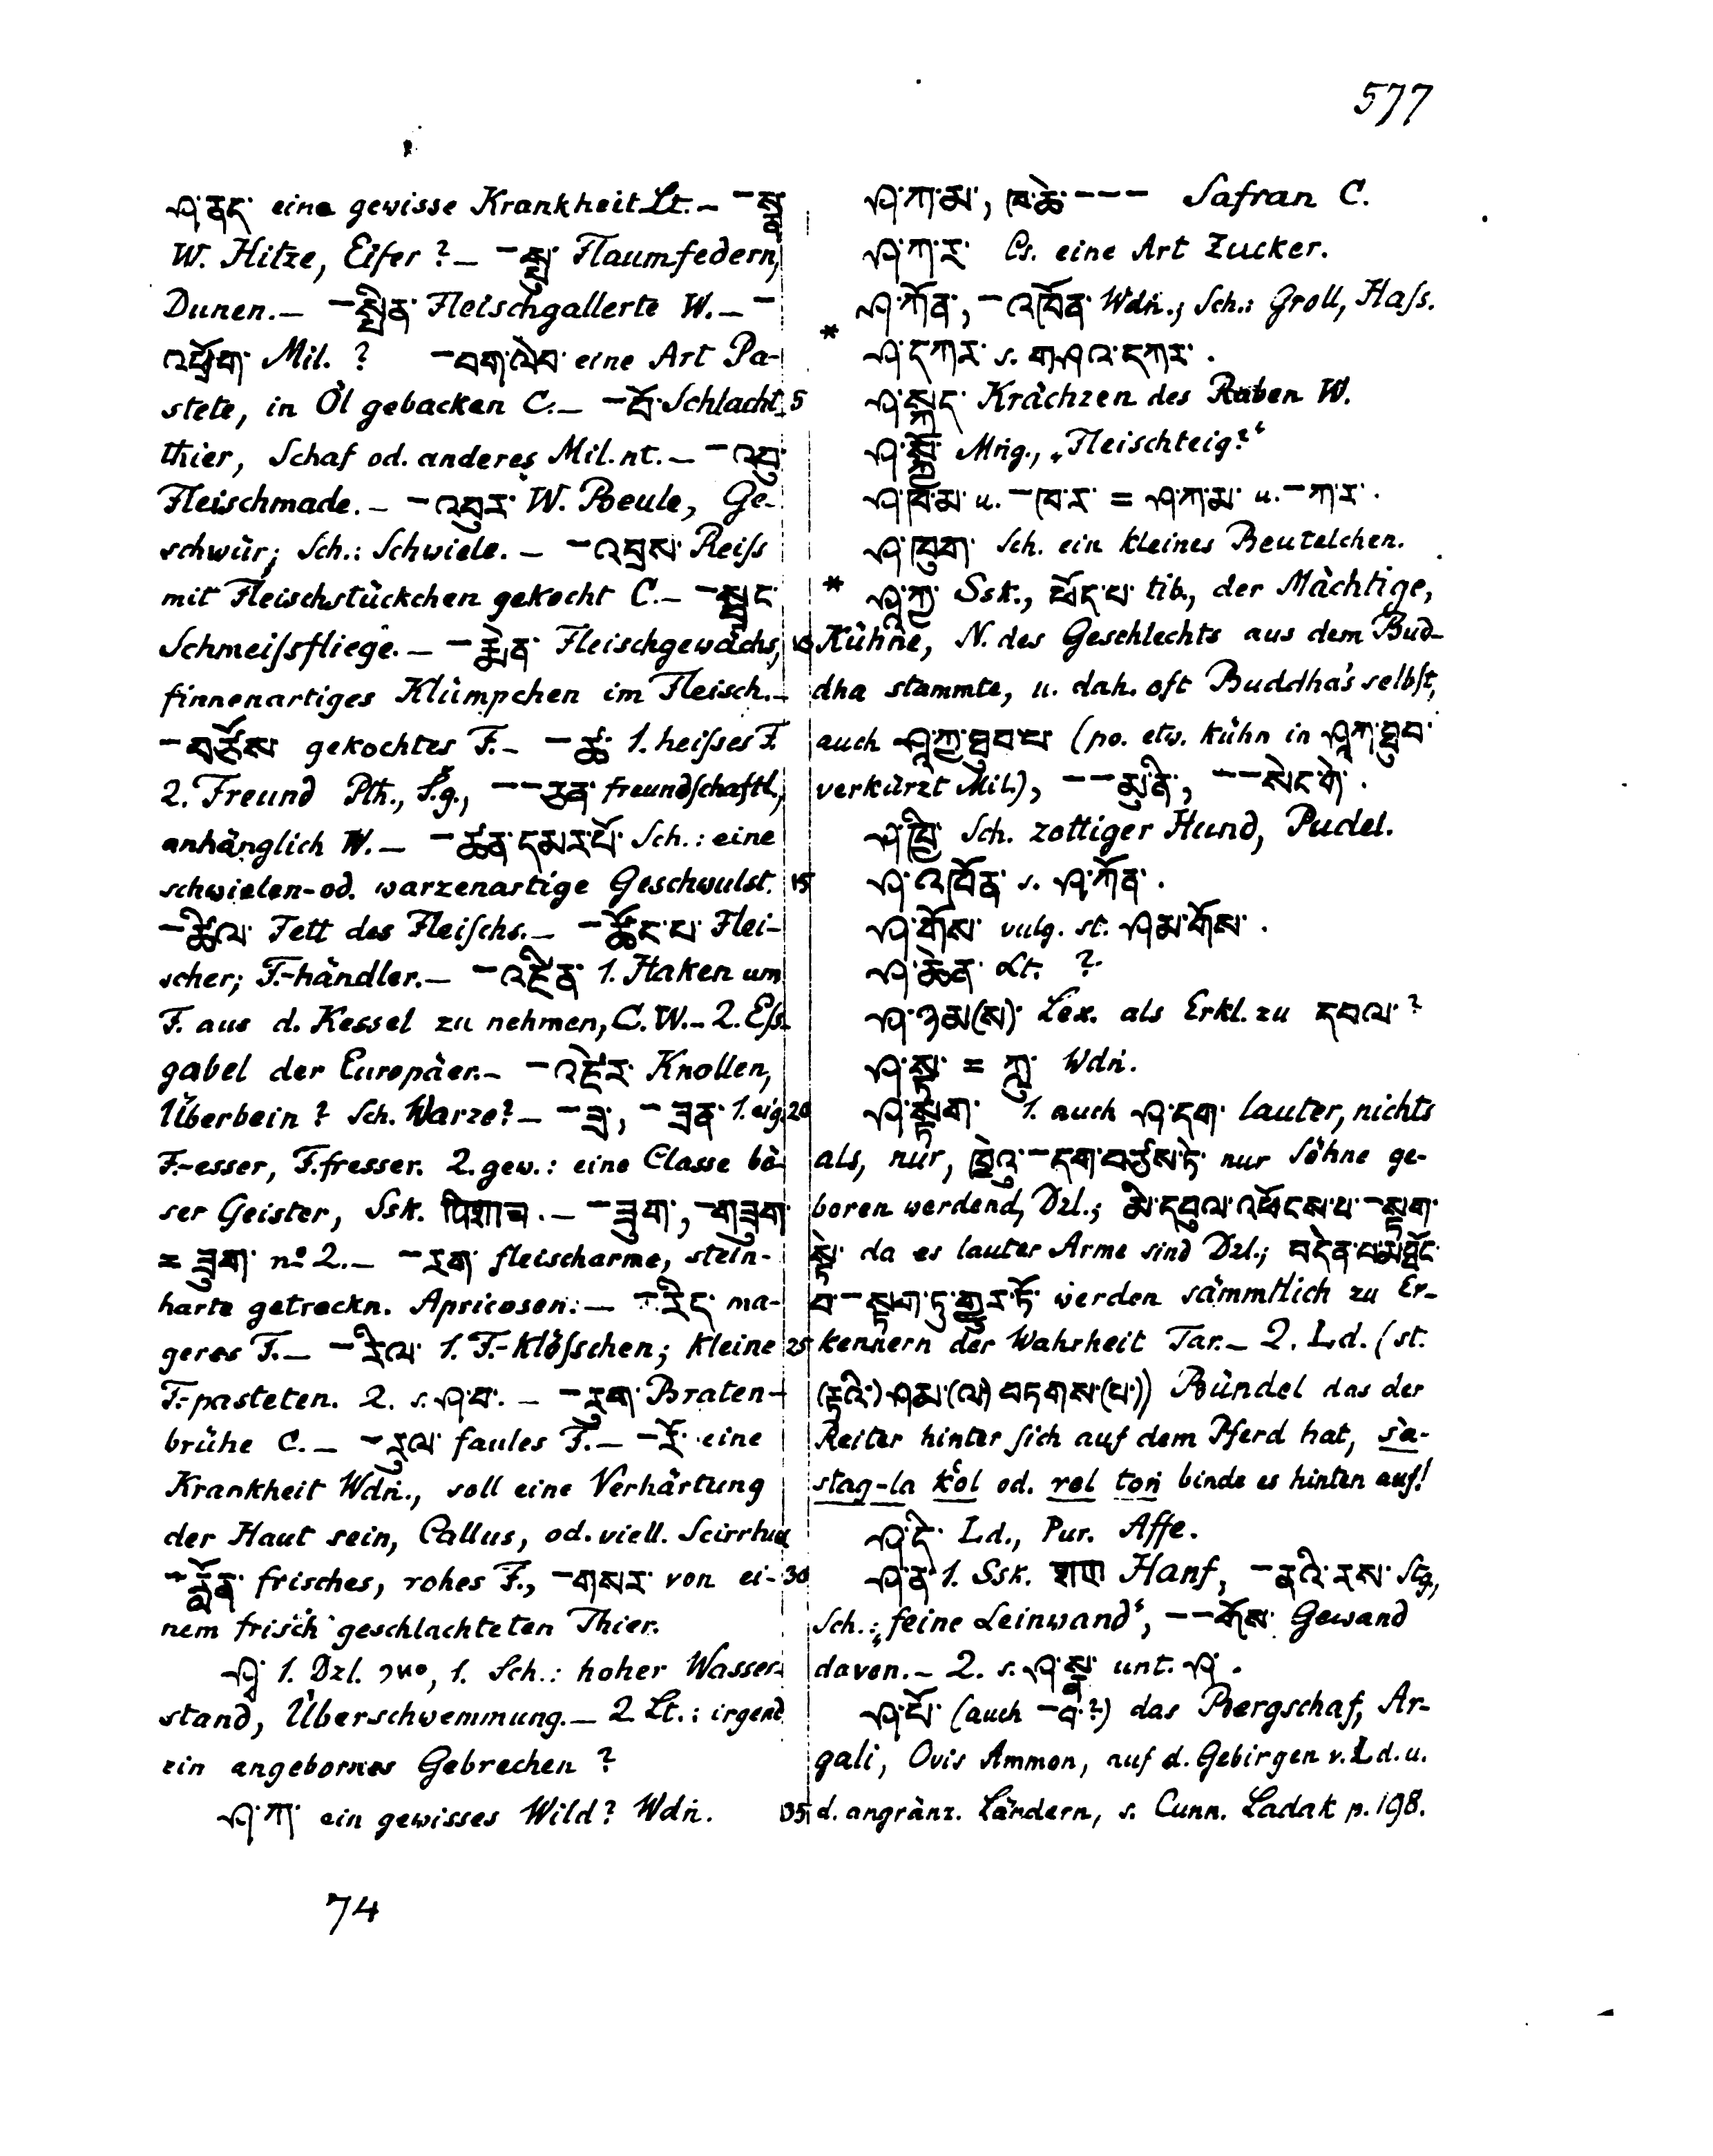 577
ཤ་ནད་ eine gewisse Krankheit Lt. — –སྣ
W. Hitze, Eifer? — –སྤུ་ Flaumfedern,
Dunen. — –སྤྱིན་ Fleischgallerte W. — –
འཕྲོག་ Mil. ? –བག་ལེབ་ eine Art Pa-
stete, in Öl gebacken C. — –པོ་ Schlacht- 5
thier, Schaf od. anderes Mil. nt. — –འབུ་
Fleischmade. — –འབུར་ W. Beule, Ge-
schwür; Sch.: Schwiele. — –འབྲས་ Reiſs
mit Fleischstückchen gekocht C. — –སྦྲང་
Schmeiſsfliege. — –རྨེན་ Fleischgewächs, 10
finnenartiges Klümpchen im Fleisch. —
–བཙོས་ gekochtes F. — –ཚ་ 1. heiſses F.
2. Freund Pth., S.g., ––ཅན་ freundſchaftl.,
anhänglich W. — –ཚན་དམར་པོ་ Sch.: eine
schwielen- od. warzenartige Geschwulst. 15
–ཚིལ་ Fett des Fleiſchs. — –ཚོང་པ་ Flei-
scher; F.-händler. — –འཛིན་ 1. Haken um
F. aus d. Kessel zu nehmen, C. W. — 2. Eſs-
gabel der Europäer. — –འཛེར་ Knollen,
Überbein? Sch. Warze? — –ཟ་, –ཟན་ 1. eig. 20
F.-esser, F.fresser. 2. gew.: eine Classe bö-
ser Geister, Ssk. पिशाच. — –ཟུག་, –གཟུག་
= ཟུག་ nº 2. — –རག་ fleischarme, stein-
harte getrockn. Apricosen: — –རིད་ ma-
geres F. — –རིལ་ 1. F.-klöſschen; kleine 25
F.-pasteten. 2. s. ཤ་བ་. — –རུག་ Braten-
brühe C. — –རུལ་ faules F. — –རོ་ eine
Krankheit Wdṅ., soll eine Verhärtung
der Haut sein, Callus, od. viell. Scirrhus
–རློན་ frisches, rohes F., –གསར་ von ei- 30
nem frisch geschlachteten Thier.
ཤྭ་ 1. Dzl. 1. Sch.: hoher Wasser-
stand, Überschwemmung. — 2 Lt.: irgend
ein angebornes Gebrechen ?
ཤ་ཀ་ ein gewisses Wild? Wdṅ. 35
74
ཤ་ཀ་མ་, ཁ་ཆེ་ ––– Safran C.
ཤ་ཀ་ར་ Cs. eine Art Zucker.
ཤ་ཀོན་, –འཁོན་ Wdṅ.; Sch.: Groll, Haſs.
* ཤ་དཀར་ s. གཤའ་དཀར་.
ཤ་སྐད་ Krächzen des Raben W.
ཤ་སྐྱོ་ Mṅg., „Fleischteig?“
ཤ་ཁ་མ་ u. –ཁ་ར་ = ཤ་ཀ་མ་ u. –ཀ་ར་.
ཤ་ཁུག་ Sch. ein kleines Beutelchen.
* ཤཱ་ཀྱ་ Ssk., ཕོད་པ་ tib., der Mächtige,
Kühne, N. des Geschlechts aus dem Bud-
dha stammte, u. dah. oft Buddha's selbſt,
auch ཤཱ་ཀྱ་ཐུབ་པ་ (po. etw. kühn in ཤཱཀ་ཐུབ་
verkürzt Mil.), ––མུ་ནི་, ––སེང་གེ་.
ཤ་ཁྱི་ Sch. zottiger Hund, Pudel.
ཤ་འཁོན་ s. ཤ་ཀོན་.
ཤ་གོས་ vulg. st. ཤམ་གོས་.
ཤ་ཆེན་ Lt. ?
ཤ་ཉམ(ས)་ Lex. als Erkl. zu དབལ་?
ཤ་སྟ་ = ཀླུ་ Wdṅ.
ཤ་སྟག་ 1. auch ཤ་དག་ lauter, nichts
als, nur, ཁྱེའུ་–དག་བཙས་ཏེ་ nur Söhne ge-
boren werdend, Dzl.; མི་དབུལ་འཕོངས་པ་–སྟག་
སྟེ་ da es lauter Arme sind Dzl.; བདེན་པ་མཐོང་
བ་–སྟག་ཏུ་གྱུར་ཏོ་ werden sämmtlich zu Er-
kennern der Wahrheit Tar. — 2. Ld. (st.
(རྟའི་) ཤམ་(ལ) བཏགས་(པ་)) Bündel das der
Reiter hinter ſich auf dem Pferd hat, s̀a-
stag-la k̔ol od. rel toṅ binde es hinten auf!
ཤ་དེ་ Ld., Pur. Affe.
ཤ་ན་ 1. Ssk. शण Hanf, –ནའི་རས་ Stg.,
Sch.: „feine Leinwand“, ––གོས་ Gewand
davon. — 2. s. ཤ་སྣ་ unt. ཤ་.
ཤ་པོ་ (auch –བ་?) das Bergschaf, Ar-
gali, Ovis Ammon, auf d. Gebirgen v. Ld. u.
d. angränz. Ländern, s. Cunn. Ladak p. 198.